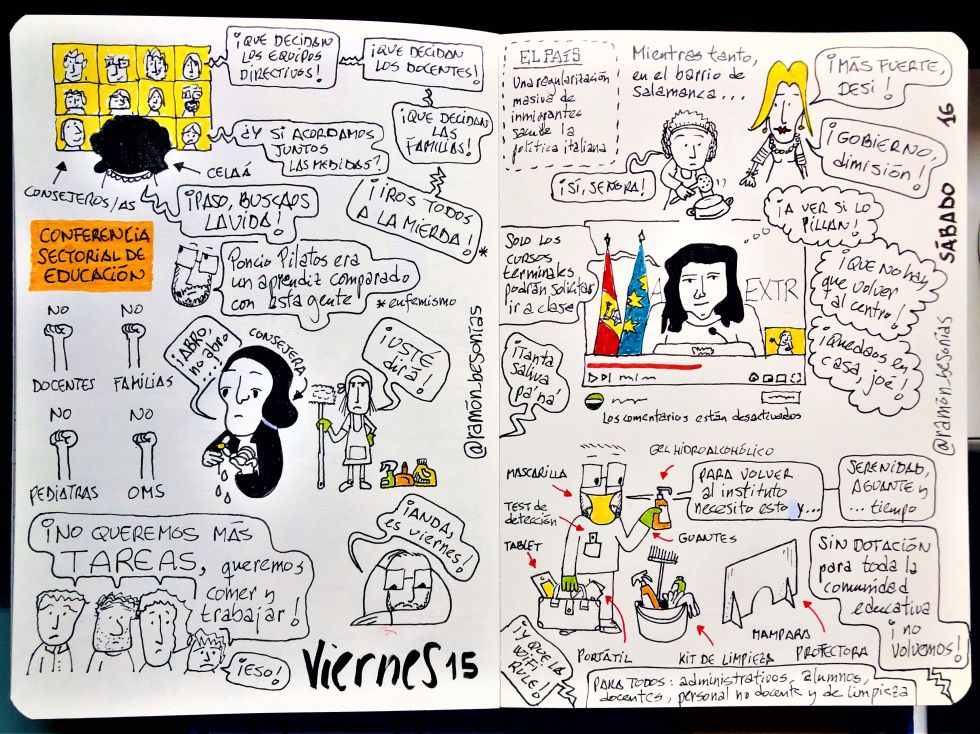 ¡QUE DECIDAN
LOS EQUIPOS
DIRECTIVOS!
¡QUE DECIDAN
LOS DOCENTES!
¡QUE DECIDAN
LAS
FAMILIAS!
¿Y SI ACORDAMOS
JUNTOS
LAS MEDIDAS?
CONSEJEROS/AS
CELAÁ
¡PASO, BUSCAOS
LA VIDA!
¡IROS TODOS
A LA MIERDA! *
CONFERENCIA
SECTORIAL DE
EDUCACIÓN
Poncio Pilatos era
un aprendiz comparado
con esta gente
* eufemismo
NO
DOCENTES
NO
FAMILIAS
NO
PEDIATRAS
NO
OMS
¡ABRO,
no abro!
CONSEJERA
¡USTÉ
dirá!
@ramón_besonías
¡NO QUEREMOS MÁS
TAREAS, queremos
comer y
trabajar!
¡ESO!
¡ANDA,
es viernes!
Viernes 15
EL PAÍS
Una regularización
masiva de
inmigrantes
sacude la
política italiana
Mientras tanto,
en el barrio de
Salamanca...
¡MÁS FUERTE,
DESI!
¡SÍ, SEÑORA!
¡GOBIERNO,
dimisión!
SÁBADO 16
¡A VER SI LO
PILLAN!
SOLO LOS
CURSOS
terminales
podrán solicitar
ir a clase
EXTR
¡QUE NO hay
que volver
al centro!
¡QUEDAOS en
casa, joé!
¡Tanta
saliva
pa'na!
Los comentarios están desactivados
@ramón_besonías
GEL HIDROALCOHÓLICO
MASCARILLA
TEST de
detección
TABLET
GUANTES
PARA VOLVER
al instituto
necesito esto y...
SERENIDAD,
AGUANTE y
... tiempo
SIN DOTACIÓN
para toda la
comunidad
educativa
¡no
volvemos!
PORTÁTIL
KIT DE LIMPIEZA
MAMPARA
PROTECTORA
¡Y QUE LA
WIFI
RULE!
PARA TODOS: administrativos, alumnos,
docentes, personal no docente y de limpieza